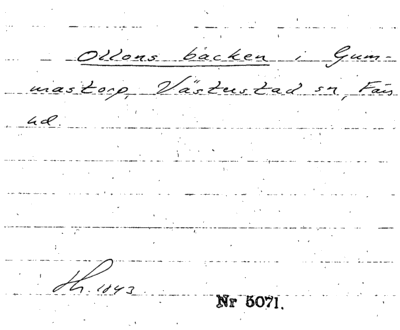 Ollons backen i Gum-
mastorp, Västustad sn, Färs
hd.
Hr. 1943
Nr 5071.